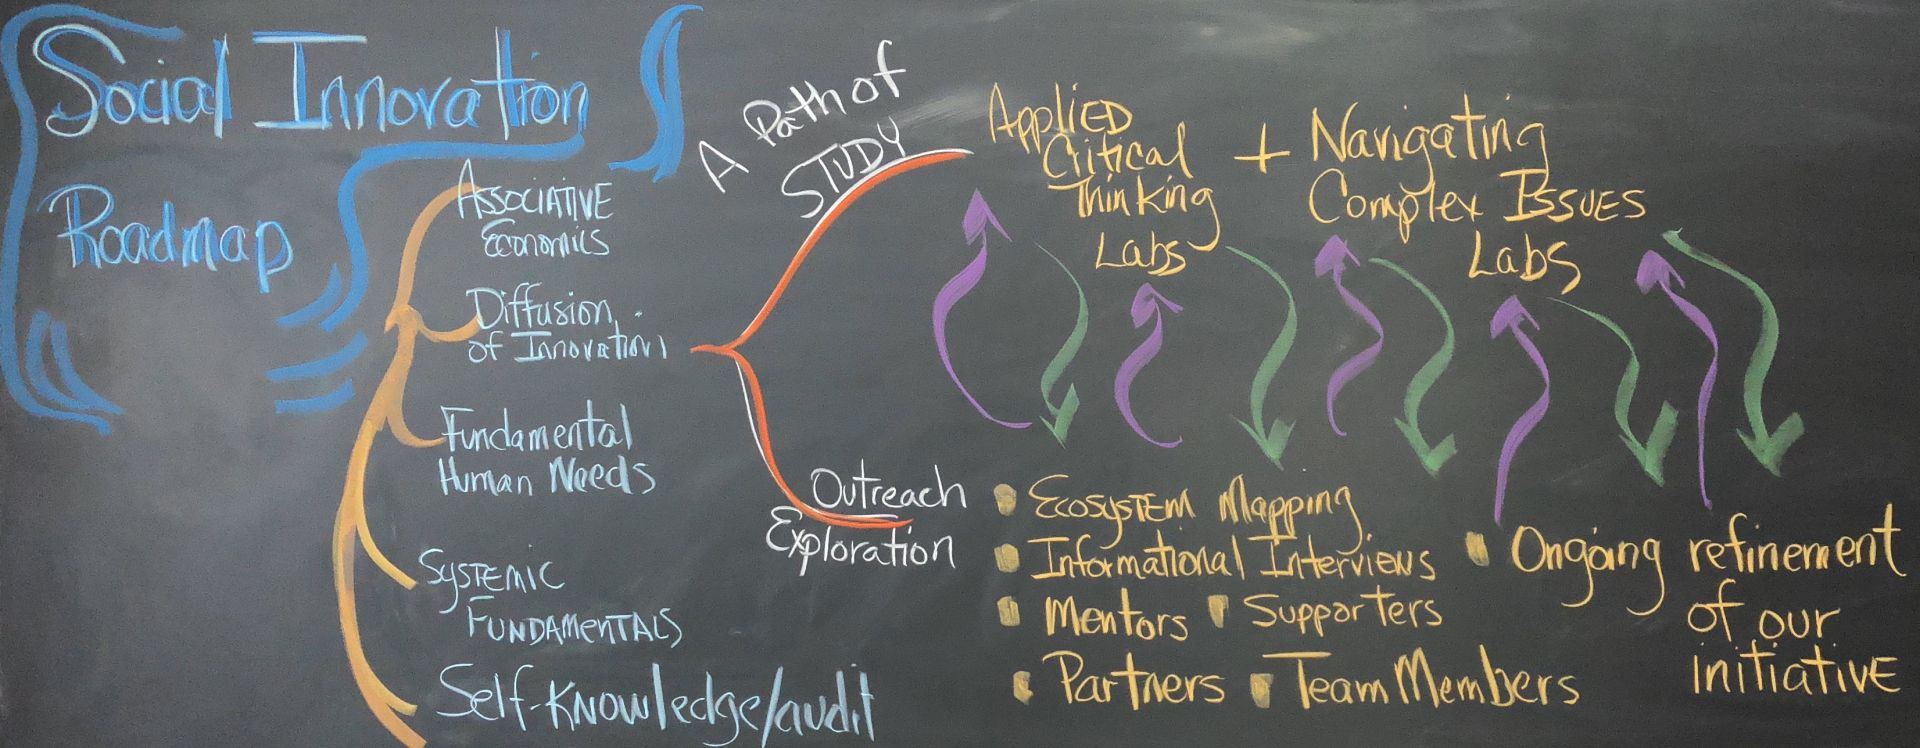 Social Innovation
Roadmap
Associative
Economics
Diffusion
of Innovation
Fundamental
Human Needs
Systemic
Fundamentals
Self-Knowledge/audit
A Path of
STUDY
Outreach
Exploration
Applied
Critical
Thinking
Labs
+ Navigating
Complex Issues
Labs
Ecosystem Mapping
Informational Interviews
Mentors
Supporters
Partners
Team Members
Ongoing refinement
of our
initiative